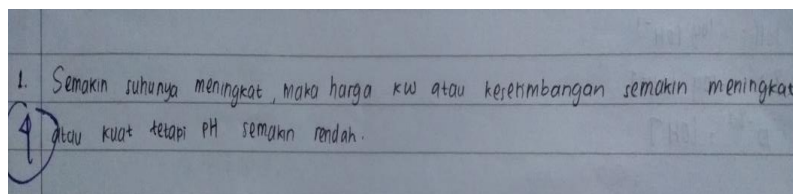 1. Semakin suhunya meningkat, maka harga kw atau keserimbangan semakin meningkat
4 atau kuat tetapi pH semakin rendah.